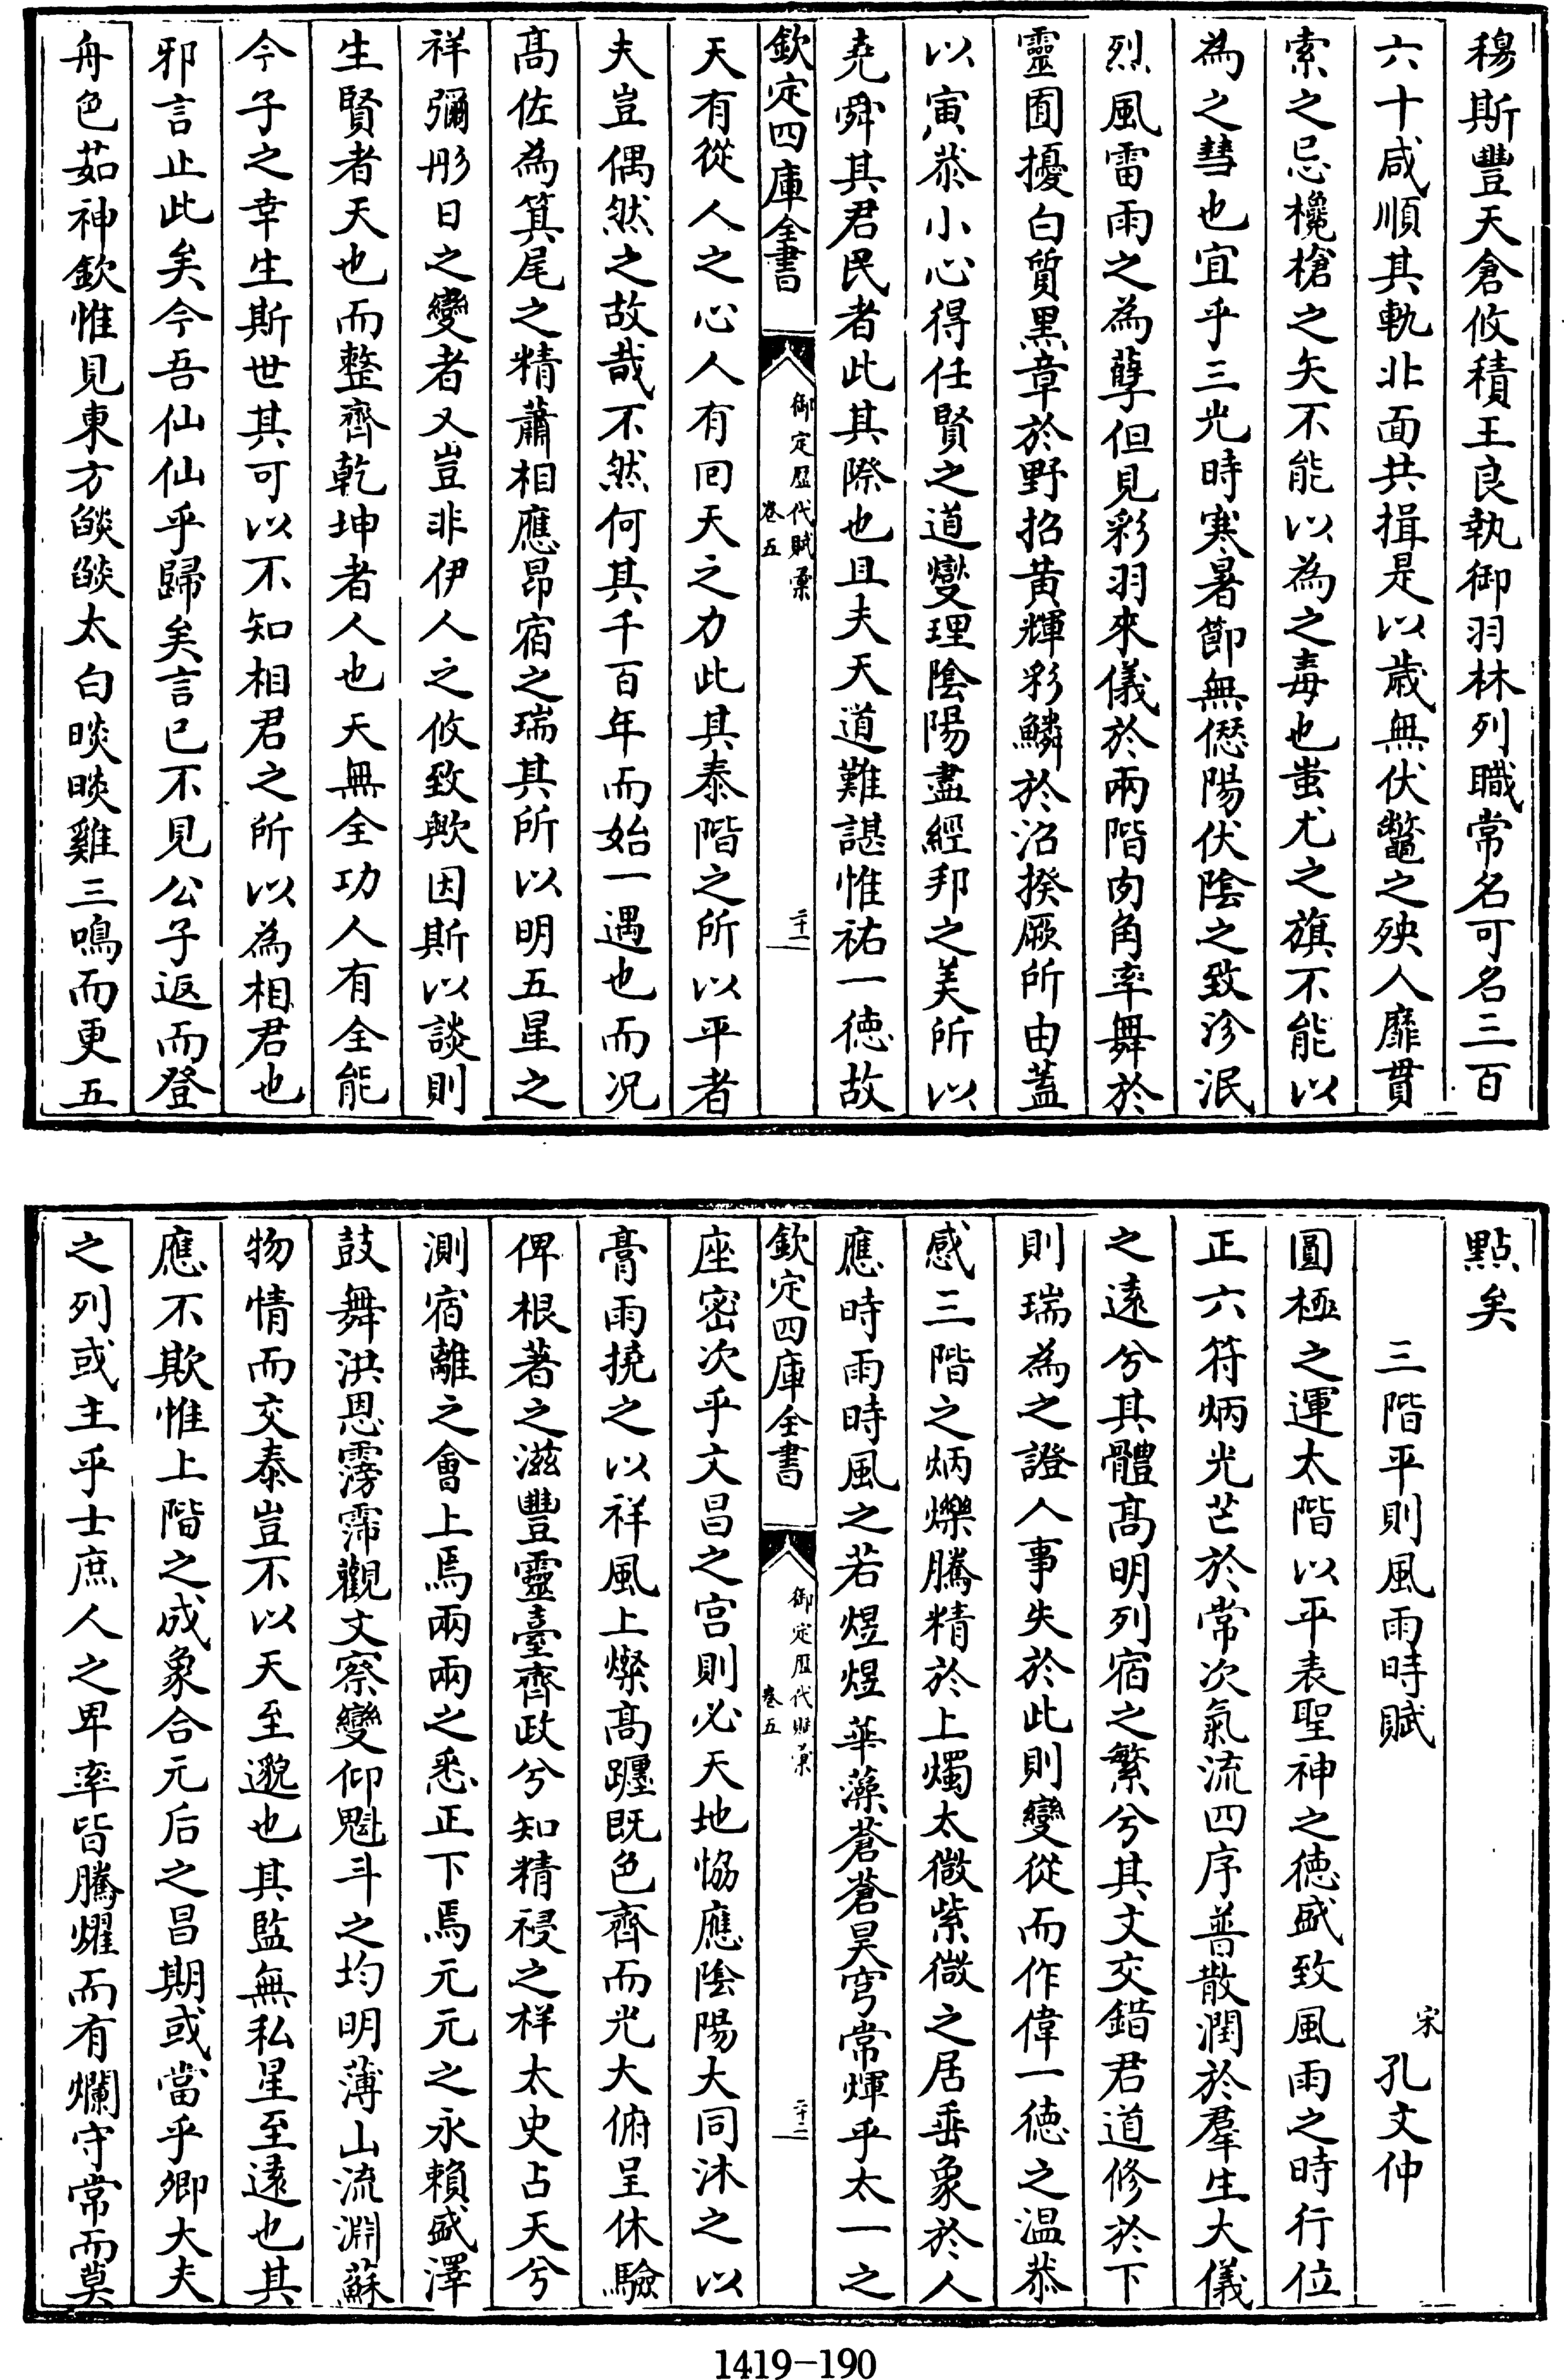 穆斯豐天倉攸積王良執御羽林列職常名可名三百
六十咸順其軌北面共揖是以歳無伏鼈之殃人靡貫
索之忌欃槍之矢不能以為之毒也蚩尤之旗不能以
為之彗也宜乎三光時寒暑節無愆陽伏陰之致沴泯
烈風雷雨之為孽但見彩羽來儀於兩階肉角率舞於
靈囿擾白質黑章於野招黄輝彩鱗於沼揆厥所由蓋
以寅恭小心得任賢之道燮理陰陽盡經邦之美所以
堯舜其君民者此其際也且夫天道難諶惟祐一徳故
欽定四庫全書
御定歴代賦彙
卷五
二十一
天有從人之心人有回天之力此其泰階之所以平者
夫豈偶然之故哉不然何其千百年而始一遇也而况
髙佐為箕尾之精蕭相應昂宿之瑞其所以明五星之
祥彌彤日之變者又豈非伊人之攸致歟因斯以談則
生賢者天也而整齊乾坤者人也天無全功人有全能
今子之幸生斯世其可以不知相君之所以為相君也
邪言止此矣今吾仙仙乎歸矣言已不見公子返而登
舟色茹神欽惟見東方燄燄太白晱晱雞三鳴而更五
點矣
三階平則風雨時賦
宋
孔文仲
圓極之運太階以平表聖神之徳盛致風雨之時行位
正六符炳光芒於常次氣流四序普散潤於羣生大儀
之逺兮其體髙明列宿之繁兮其文交錯君道修於下
則瑞為之證人事失於此則變從而作偉一徳之温恭
感三階之炳爍騰精於上燭太微紫微之居垂象於人
應時雨時風之若煜煜華藻蒼蒼昊穹常煇乎太一之
欽定四庫全書
御定歴代賦彙
卷五
二十二
座密次乎文昌之宫則必天地恊應陰陽大同沐之以
膏雨撓之以祥風上燦髙躔既色齊而光大俯呈休驗
俾根著之滋豐靈臺齊政兮知精祲之祥太史占天兮
測宿離之會上焉兩兩之悉正下焉元元之永賴盛澤
鼓舞洪恩霶霈觀文察變仰魁斗之均明薄山流淵蘇
物情而交泰豈不以天至邈也其監無私星至逺也其
應不欺惟上階之成象合元后之昌期或當乎卿大夫
之列或主乎士庶人之卑率皆騰燿而有爛守常而莫
1419-190